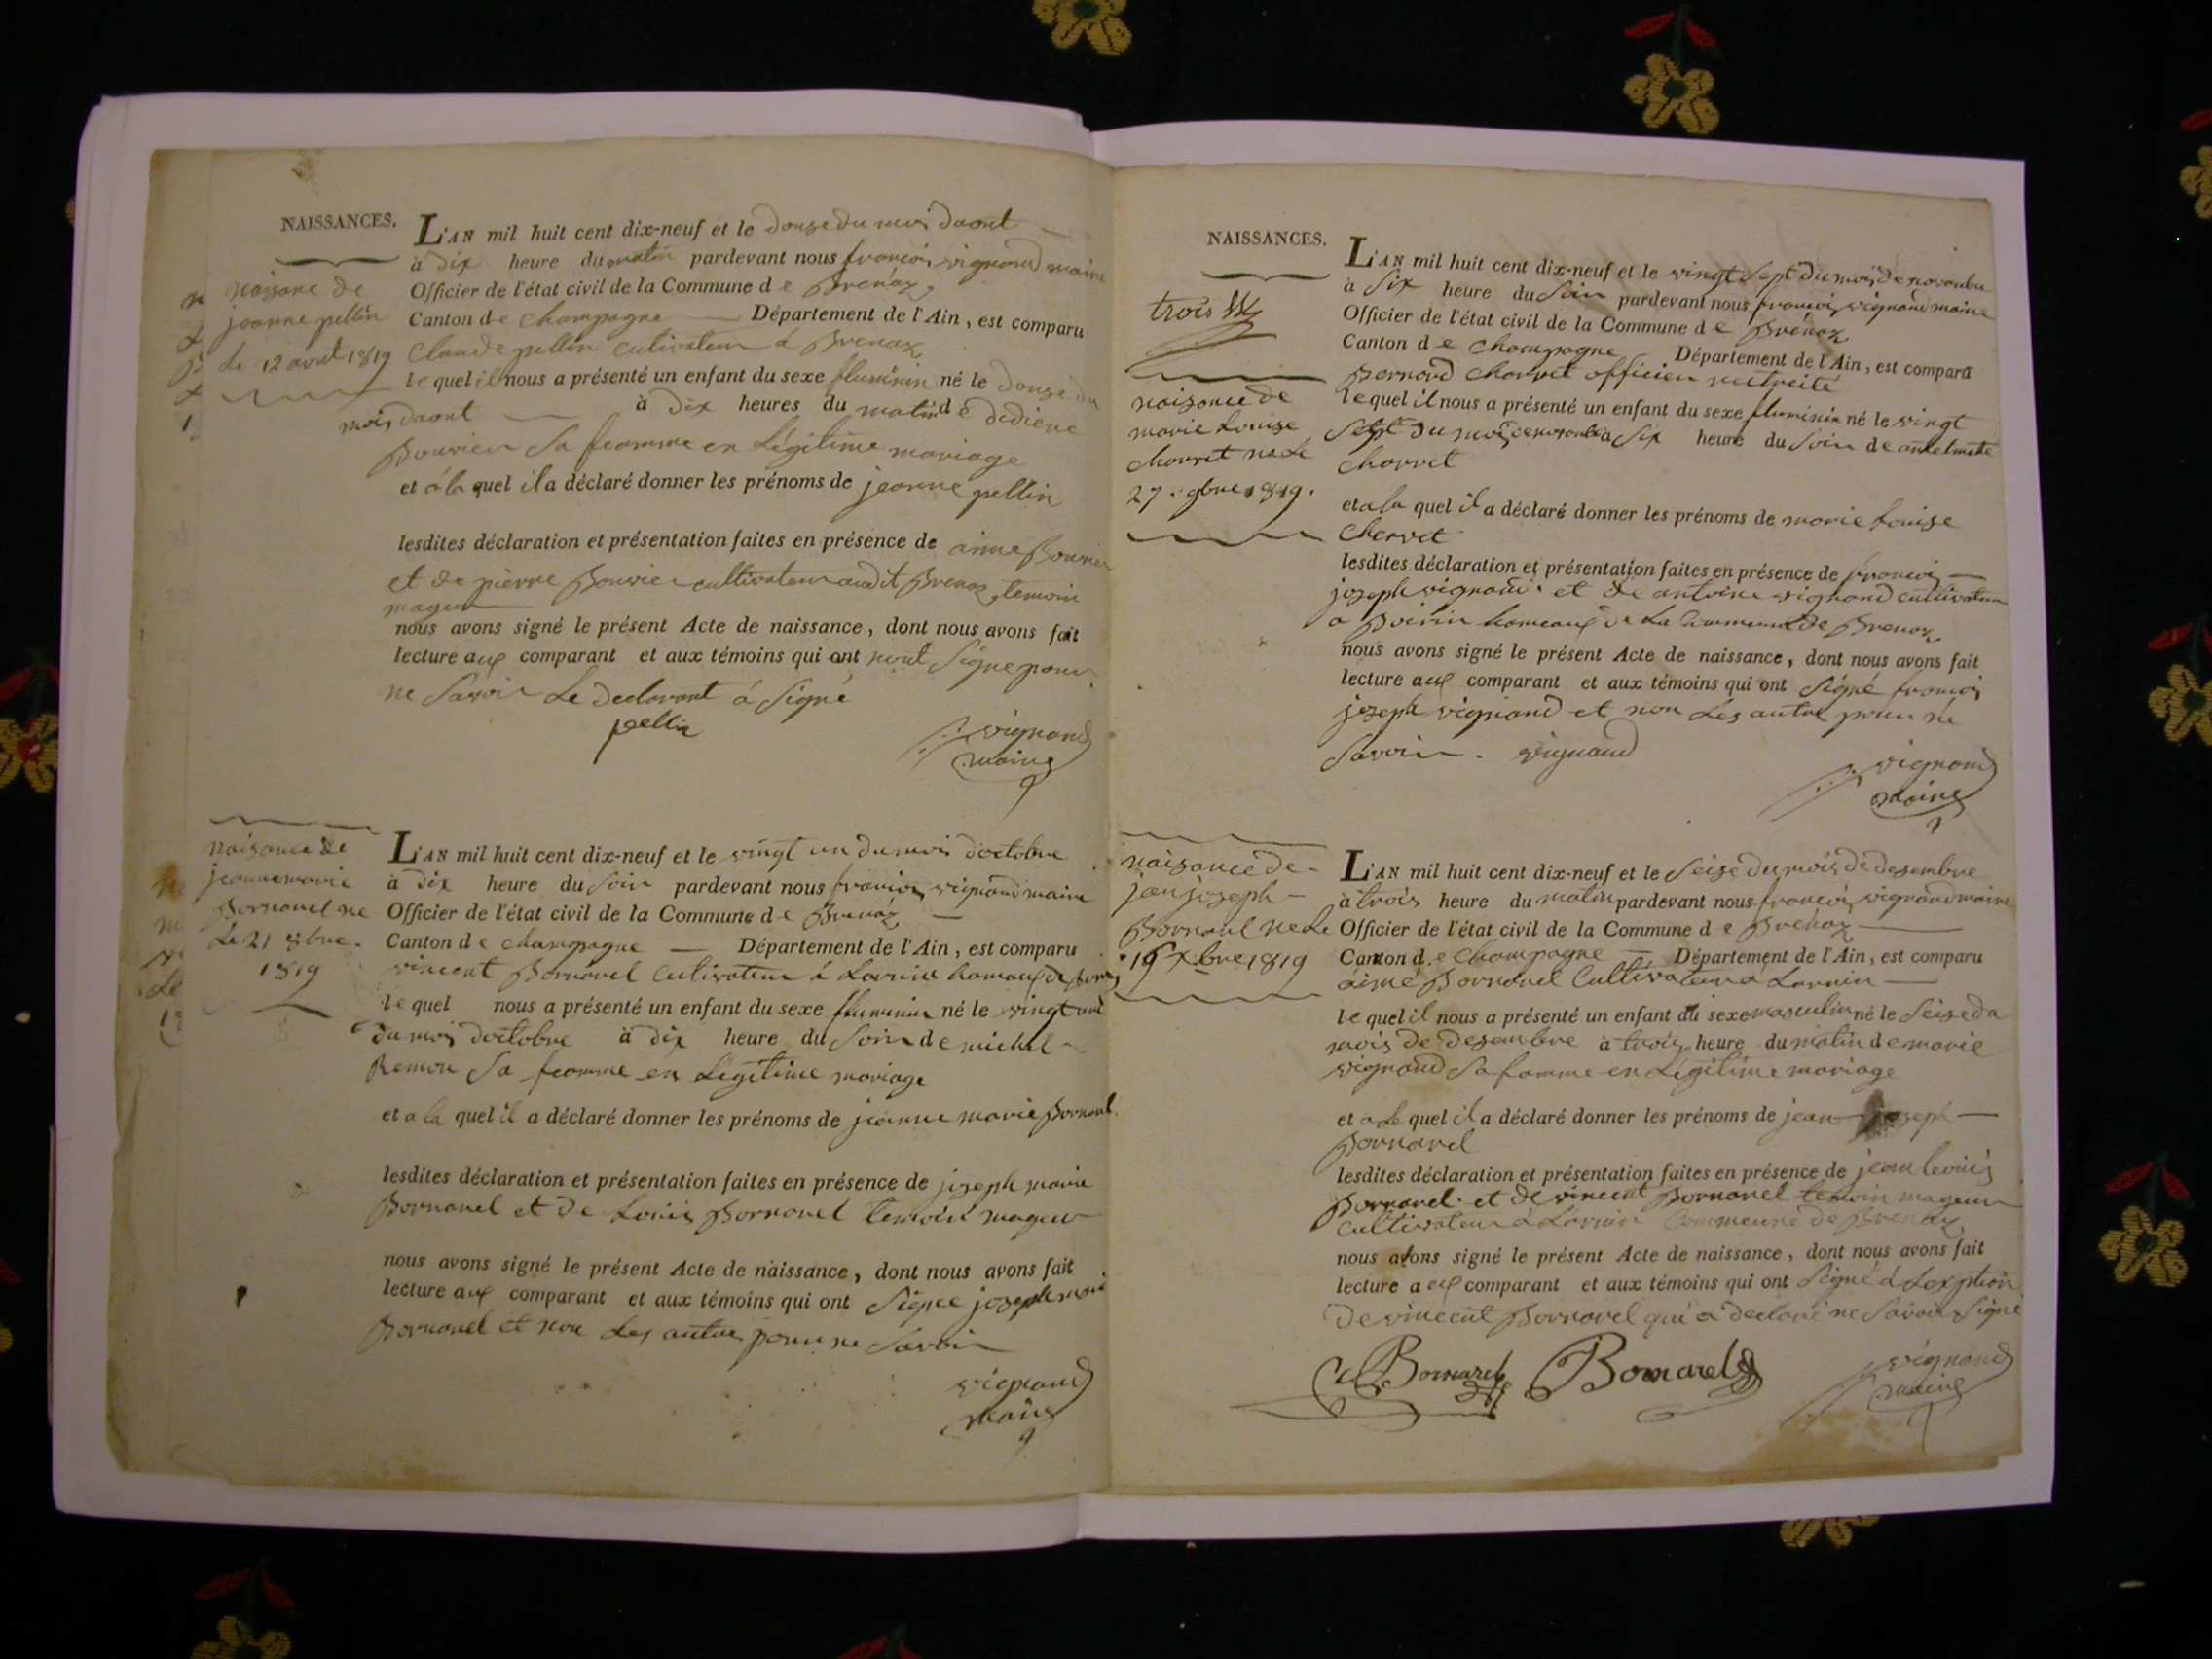 NAISSANCES.
naissanc de
jeanne pellin
Le 12 aout 1819
L'AN mil huit cent dix-neuf et le douze du moi daout
à dix heure du matin pardevant nous françois vignand maire
Officier de l'état civil de la Commune de Brenaz,
Canton de Champagne Département de l'Ain, est comparu
Claude pellin Cultivateur à Brenaz
le quel il nous a présenté un enfant du sexe né le douze du
mois daout à dix heures du matin de
Bouvier Sa feamme en Légitime mariage
et à la quel il a déclaré donner les prénoms de jeanne pellin
lesdites déclaration et présentation faites en présence de Bouvier
et de pierre Bouvier cultivateur audit Brenaz, temoin
mageur
nous avons signé le présent Acte de naissance, dont nous avons fait
lecture aux comparant et aux témoins qui ont nont Signe pour
ne Savoir Le declarant à Signé
pellin
vignand
maire
naisance de
jeanne marie
Bornarel ne
Le 21 8bre.
1819
L'AN mil huit cent dix-neuf et le vingt un du mois doctobre
à dix heure du Soir pardevant nous françois vignand maire
Officier de l'état civil de la Commune de Brenaz
Canton de Champagne Département de l'Ain, est comparu
vincent Bornarel Cultivateur à hameaux de
le quel nous a présenté un enfant du sexe né le vingt une
du mois doctobre à dix heure du Soir de michel
Remon Sa feamme en Legitime mariage
et a la quel il a déclaré donner les prénoms de jeanne marie Bornarel
lesdites déclaration et présentation faites en présence de joseph marie
Bornarel et de Louis Bornarel temoin mageur
nous avons signé le présent Acte de naissance, dont nous avons fait
lecture aux comparant et aux témoins qui ont Signe joseph marie
Bornarel et non Les autre pour ne Savoir
vignand
maire
NAISSANCES.
trois
naisance de
marie Louise
Charvet ne Le
27. 9bre 1819.
L'AN mil huit cent dix-neuf et le vingt Sept du mois de novembre
à Six heure du Soir pardevant nous françois vignand maire
Officier de l'état civil de la Commune de Brénaz
Canton de Champagne Département de l'Ain, est comparu
Bernard Charvet officier
le quel il nous a présenté un enfant du sexe né le vingt
Sept du mois de novembre à Six heure du Soir de
Charvet
et a la quel il a déclaré donner les prénoms de marie Louise
Charvet
lesdites déclaration et présentation faites en présence de françois
joseph vignand et de antoine vignand cultivateur
a hameaux de La Commune de Brenaz
nous avons signé le présent Acte de naissance, dont nous avons fait
lecture aux comparant et aux témoins qui ont Signé françois
joseph vignand et non Les autre pour ne
Savoir. vignand
vignand
maire
naisance de
jean joseph
Bornarel ne Le
16 Xbre 1819
L'AN mil huit cent dix-neuf et le Seise du mois de desembre
à trois heure du matin pardevant nous françois vignand maire
Officier de l'état civil de la Commune de Brenaz
Canton de Champagne Département de l'Ain, est comparu
aimé Bornarel Cultivateur à
le quel il nous a présenté un enfant du sexe masculin né le Seise du
mois de desembre à trois heure du matin de marie
vignand Sa famme en Legitime mariage
et a Le quel il a déclaré donner les prénoms de jean joseph
Bornarel
lesdites déclaration et présentation faites en présence de jean louis
Bornarel et de vincent Bornarel temoin mageur
Cultivateur à Commeune de Brenaz
nous avons signé le présent Acte de naissance, dont nous avons fait
lecture aux comparant et aux témoins qui ont Signé à Lexption
de vincent Bornarel qui a declaré ne Savoir Signe
Bornarel Bornarel
vignand
maire